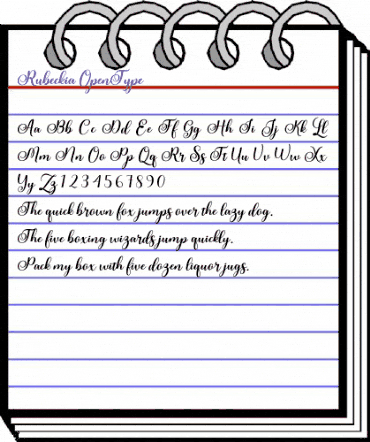 Rubeckia OpenType
Aa Bb Cc Dd Ee Ff Gg Hh Ii Jj Kk Ll
Mm Nn Oo Pp Qq Rr Ss Tt Uu Vv Ww Xx
Yy Zz 1 2 3 4 5 6 7 8 9 0
The quick brown fox jumps over the lazy dog.
The five boxing wizards jump quickly.
Pack my box with five dozen liquor jugs.